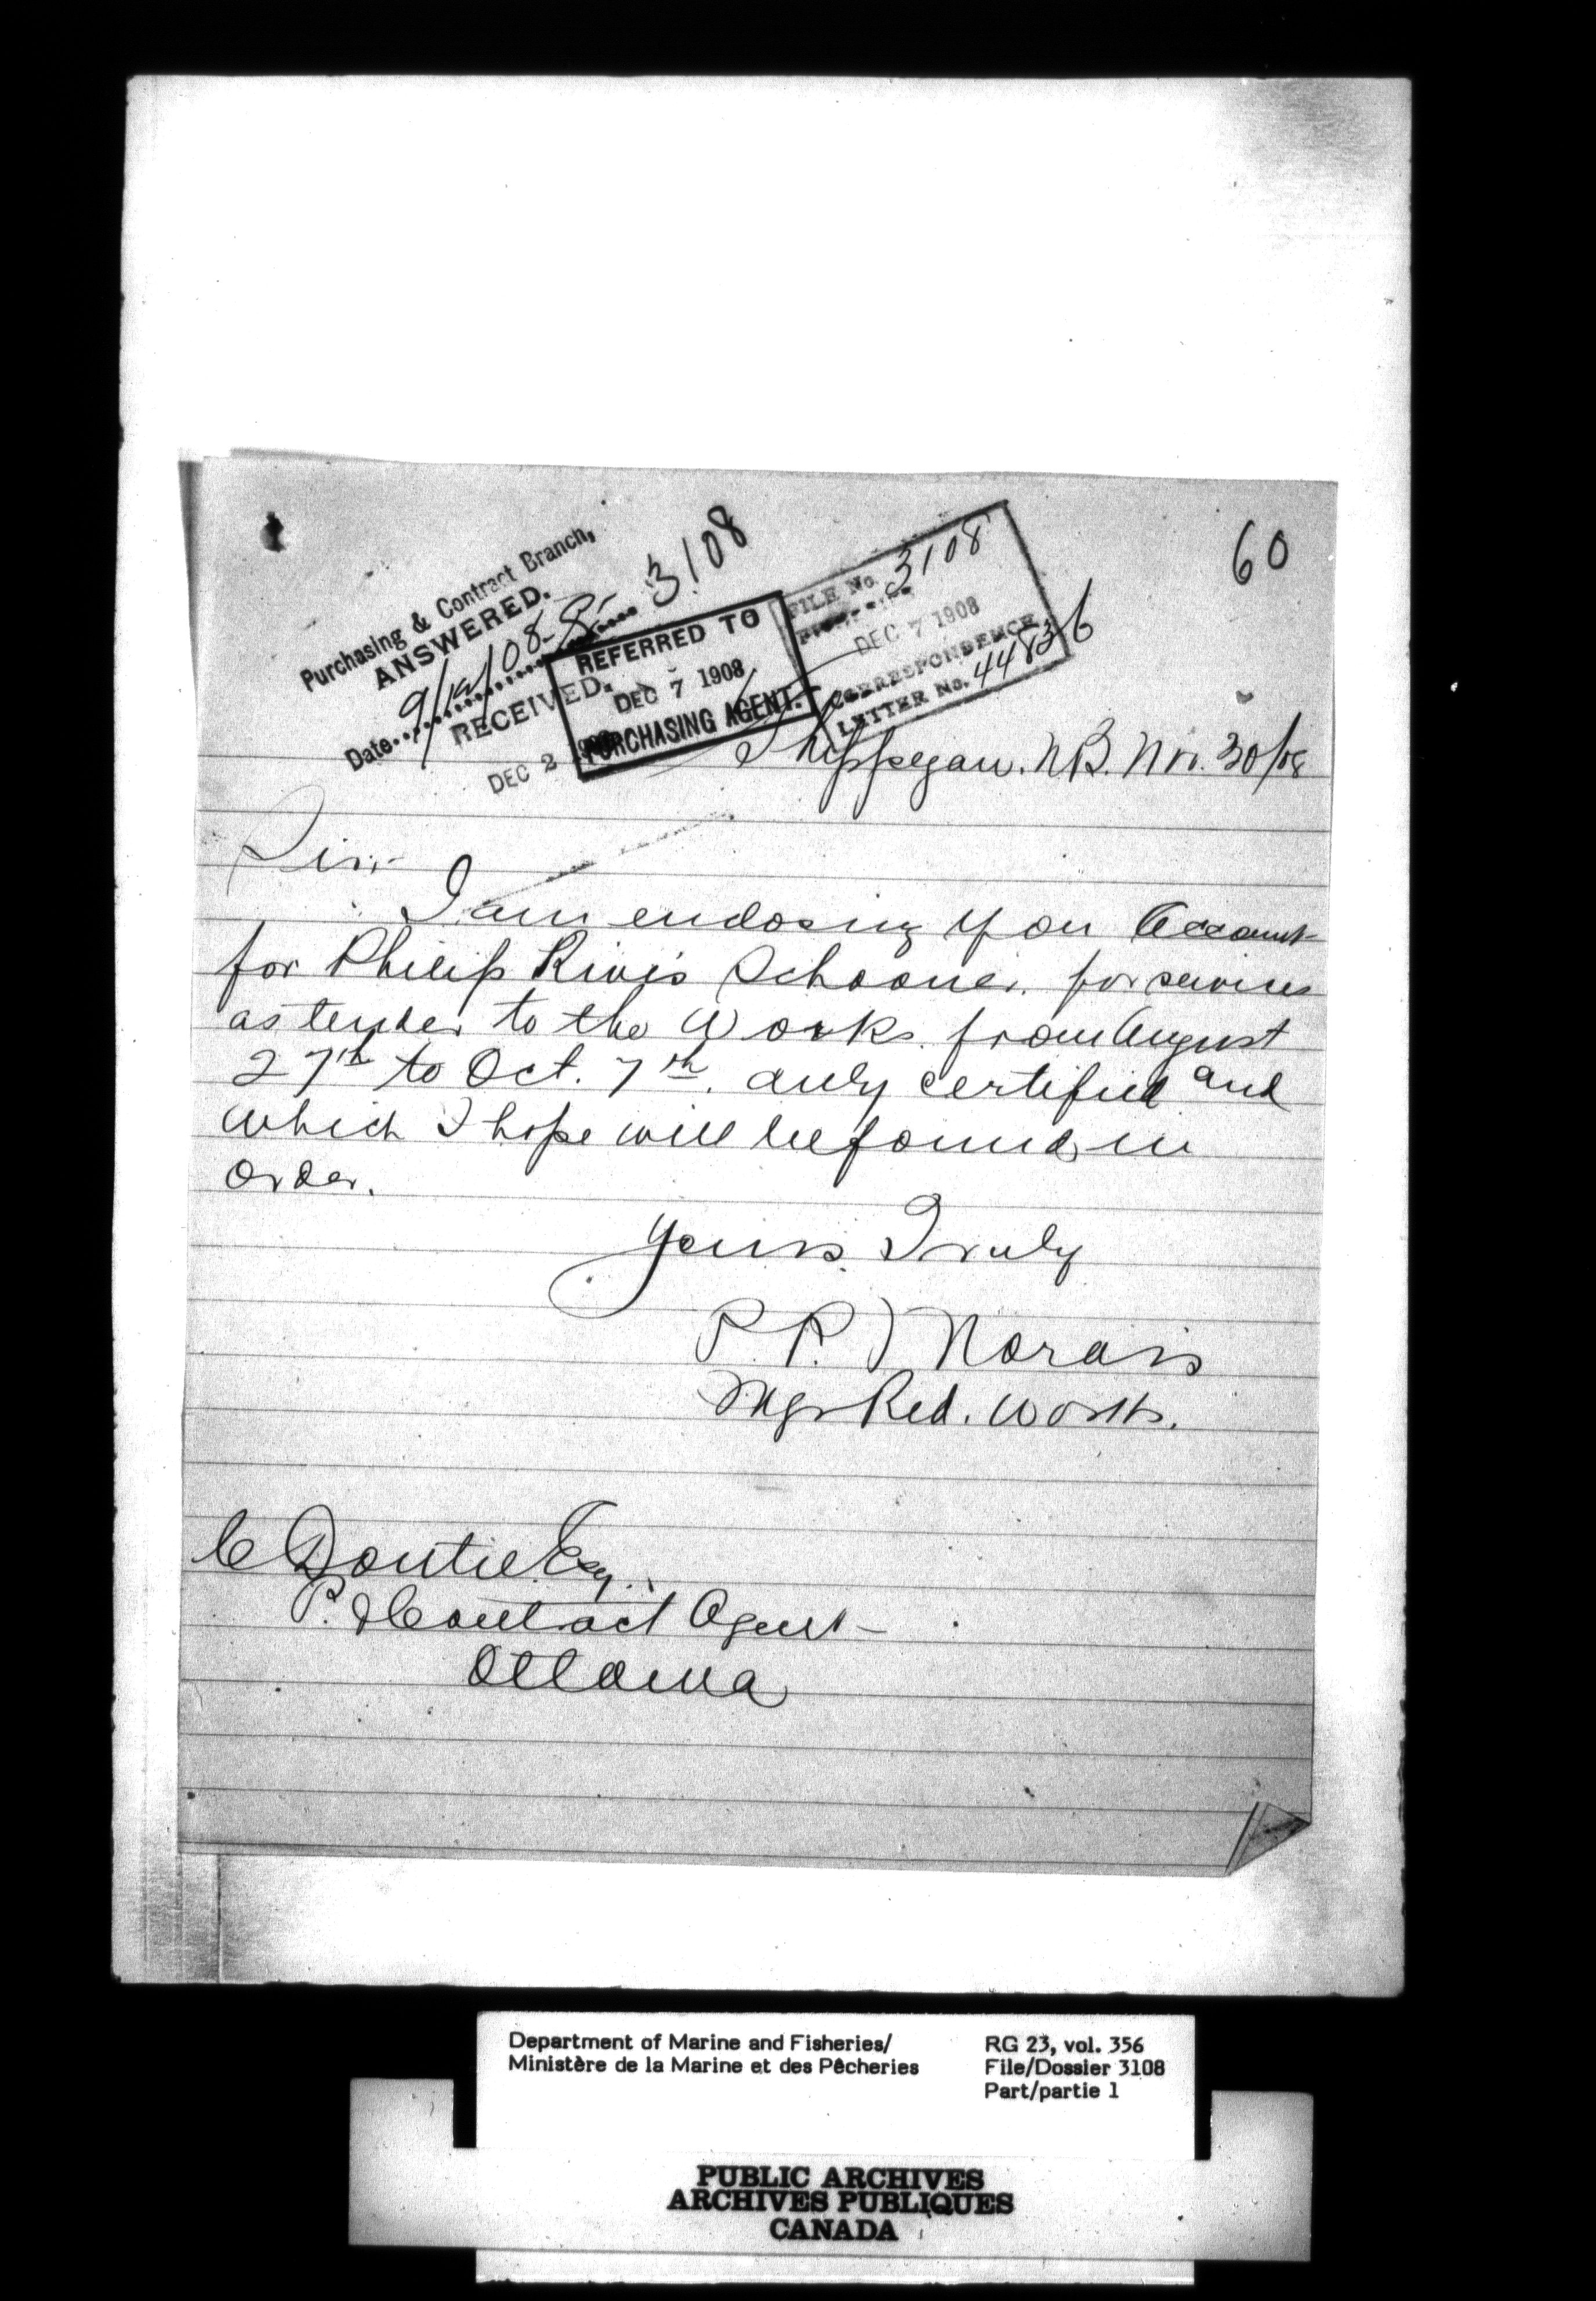 60
Purchasing & Contract Branch,
ANSWERED.
Date 9/12/08
3108
RECEIVED.
DEC 2
REFERRED TO
DEC 7 1908
PURCHASING AGENT.
FILE No. 3108
DEC 7 1908
CORRESPONDENCE
LETTER No. 44836
Shippegan. N.B. Nov. 30/08
Sir,-
I am enclosing you Account
for Philip Rive's Schooner. for services
as tender to the Works. from August
27th to Oct. 7th. duly certified and
which I hope will be found in
order.
Yours Truly
P. P. Morais
Mgr Red. Works.
C Doutre Esq.
P. & Contract Agent
Ottawa
Department of Marine and Fisheries/
Ministère de la Marine et des Pêcheries
RG 23, vol. 356
File/Dossier 3108
Part/partie 1
PUBLIC ARCHIVES
ARCHIVES PUBLIQUES
CANADA